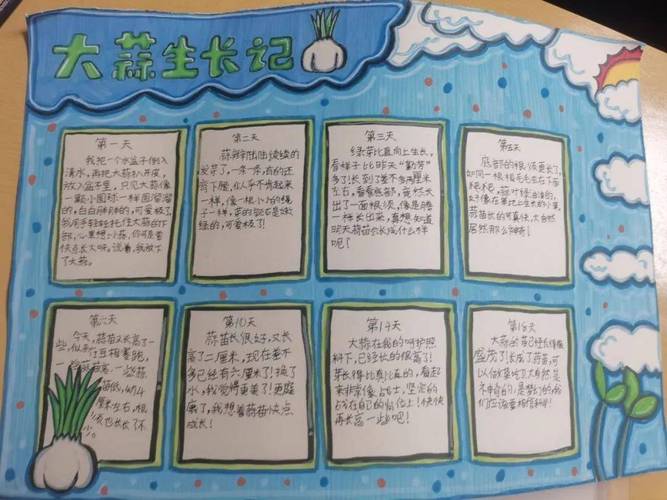 大蒜生长记
第一天
我把一个水盆子倒入
清水,再把大蒜扒开皮,
放入盆子里,只见大蒜像
一颗小圆球一样圆溜溜
的,白白胖胖的,可爱极了,
我用手轻轻托住大蒜的下
部,心里想:小蒜,你可要
快点长大呀。说着,我放下
了大蒜。
第二天
蒜瓣陆陆续续的
发芽了,一条一条
弯下腰,似乎
样,像一根小小的绳
子一样,芽的颜色是嫩
绿的,可爱极了!
第三天
绿芽比直向上生长,
看样子比昨天“勤劳”
多了!长到了差不多两厘米
左右。看看底部,竟然长
出了一面根须,像是腾
一样长出来,真想知道
明天蒜苗会长成什么样
呢?
底部的根须更长了,
如同一根根毛毛在下面
爬爬,蒜叶绿油油的,
好像在草地上生长的小草,
蒜苗长的可真快,大自然
居然那么神奇!
第六天
今天,蒜苗又长高了一
些,似乎
在互相赛跑,
高,一些蒜
苗低,约4
厘米左右,根
须也长长了不
第10天
蒜苗长很好,又长
高了二厘米,现在差不
多已经有六厘米了!换了
水,我觉得更美了!更
了,我想着蒜苗快点
成长!
第14天
大蒜在我的呵护照
料下,已经长的很高了!
芽长得比真比直的,看起
来非常像战士,坚定的
站在自己的岗位上!快快
再长高一些吧!
第18天
大蒜苗已经长得很
盛茂了!长成了蒜苗,可
以做菜吃了,大自然是
神奇的,是梦幻的,我
们应该要相信科学!